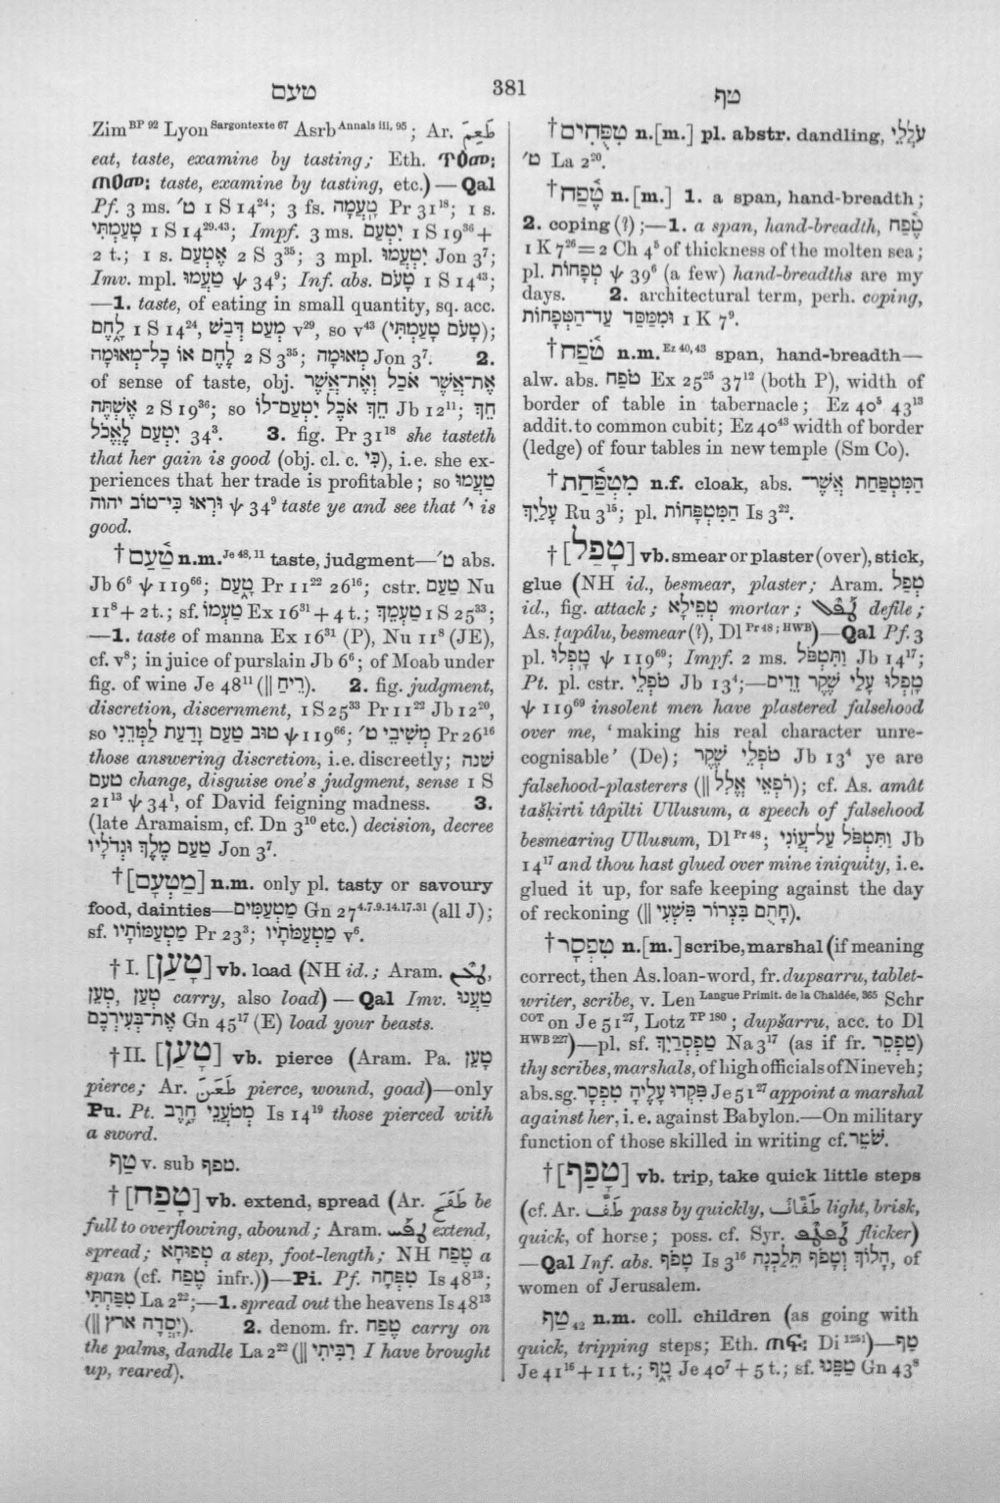 טעם
381
טף
Zim BP 92 Lyon Sargontexte 67 Asrb Annals iii, 95; Ar. طَعِمَ
eat, taste, examine by tasting; Eth. ጥዕመ:
ጠዐመ: taste, examine by tasting, etc.) — Qal
Pf. 3 ms. ט׳ 1 S 14²⁴; 3 fs. טָֽעֲמָה Pr 31¹⁸; 1 s.
טָעַמְתִּי 1 S 14²⁹·⁴³; Impf. 3 ms. יִטְעַם 1 S 19³⁶ +
2 t.; 1 s. אֶטְעַם 2 S 3³⁵; 3 mpl. יִטְעֲמוּ Jon 3⁷;
Imv. mpl. טַעֲמוּ ψ 34⁹; Inf. abs. טָעֹם 1 S 14⁴³;
—1. taste, of eating in small quantity, sq. acc.
לֶחֶם 1 S 14²⁴, מְעַט דְּבַשׁ v²⁹, so v⁴³ (טָעֹם טָעַמְתִּי);
לֶחֶם אוֹ כָל־מְאוּמָה 2 S 3³⁵; מְאוּמָה Jon 3⁷. 2.
of sense of taste, obj. אֶת־אֲשֶׁר אֹכַל וְאֶת־אֲשֶׁר
אֶשְׁתֶּה 2 S 19³⁶; so חֵךְ אֹכֶל יִטְעַם־לוֹ Jb 12¹¹; חֵךְ
יִטְעַם לֶאֱכֹל 34³. 3. fig. Pr 31¹⁸ she tasteth
that her gain is good (obj. cl. c. כִּי), i.e. she ex-
periences that her trade is profitable; so טַעֲמוּ
וּרְאוּ כִּי־טוֹב יהוה ψ 34⁹ taste ye and see that י׳ is
good.
† טַ֫עַם n.m. Je 48, 11 taste, judgment—ט׳ abs.
Jb 6⁶ ψ 119⁶⁶; טָ֑עַם Pr 11²² 26¹⁶; cstr. טַעַם Nu
11⁸ + 2 t.; sf. טַעְמוֹ Ex 16³¹ + 4 t.; טַעְמֵךְ 1 S 25³³;
—1. taste of manna Ex 16³¹ (P), Nu 11⁸ (JE),
cf. v⁸; in juice of purslain Jb 6⁶; of Moab under
fig. of wine Je 48¹¹ (‖ רֵיחַ). 2. fig. judgment,
discretion, discernment, 1 S 25³³ Pr 11²² Jb 12²⁰,
so טוּב טַעַם וָדַעַת לַמְּדֵנִי ψ 119⁶⁶; מְשִׁיבֵי ט׳ Pr 26¹⁶
those answering discretion, i.e. discreetly; שׁנה
טעם change, disguise one's judgment, sense 1 S
21¹³ ψ 34¹, of David feigning madness. 3.
(late Aramaism, cf. Dn 3¹⁰ etc.) decision, decree
טַעַם מֶלֶךְ וּגְדֹלָיו Jon 3⁷.
† [מַטְעָם] n.m. only pl. tasty or savoury
food, dainties—מַטְעַמִּים Gn 27⁴·⁷·⁹·¹⁴·¹⁷·³¹ (all J);
sf. מַטְעַמּוֹתָיו Pr 23³; מַטְעַמֹּתָיו v⁶.
† I. [טָעַן] vb. load (NH id.; Aram. ܛܥܢ,
טְעַן, טְעֵן carry, also load) — Qal Imv. טַעֲנוּ
אֶת־בְּעִירְכֶם Gn 45¹⁷ (E) load your beasts.
† II. [טָעַן] vb. pierce (Aram. Pa. טָעֵן
pierce; Ar. طَعَنَ pierce, wound, goad)—only
Pu. Pt. מְטֹעֲנֵי חָרֶב Is 14¹⁹ those pierced with
a sword.
טַף v. sub טפף.
† [טָפַח] vb. extend, spread (Ar. طَفَحَ be
full to overflowing, abound; Aram. ܛܦܚ extend,
spread; טְפוּחָא a step, foot-length; NH טֶפַח a
span (cf. טֶפַח infr.))—Pi. Pf. טִפְּחָה Is 48¹³;
טִפַּחְתִּי La 2²²;—1. spread out the heavens Is 48¹³
(‖ יָסְדָה ארץ). 2. denom. fr. טֶפַח carry on
the palms, dandle La 2²² (‖ רִבִּיתִי I have brought
up, reared).
† טִפֻּחִים n.[m.] pl. abstr. dandling, עֹלֲלֵי
ט׳ La 2²⁰.
† טֶ֫פַח n.[m.] 1. a span, hand-breadth;
2. coping (?);—1. a span, hand-breadth, טֶפַח
1 K 7²⁶ = 2 Ch 4⁵ of thickness of the molten sea;
pl. טְפָחוֹת ψ 39⁶ (a few) hand-breadths are my
days. 2. architectural term, perh. coping,
וּמִמַּסַּד עַד־הַטְּפָחוֹת 1 K 7⁹.
† טֹ֫פַח n.m. Ez 40, 43 span, hand-breadth—
alw. abs. טֹפַח Ex 25²⁵ 37¹² (both P), width of
border of table in tabernacle; Ez 40⁵ 43¹³
addit. to common cubit; Ez 40⁴³ width of border
(ledge) of four tables in new temple (Sm Co).
† מִטְפַּ֫חַת n.f. cloak, abs. הַמִּטְפַּחַת אֲשֶׁר־
עָלַיִךְ Ru 3¹⁵; pl. הַמִּטְפָּחוֹת Is 3²².
† [טָפַל] vb. smear or plaster (over), stick,
glue (NH id., besmear, plaster; Aram. טְפַל
id., fig. attack; טְפִילָא mortar; ܛܦܠ defile;
As. ṭapâlu, besmear (?), Dl Pr 48; HWB)—Qal Pf. 3
pl. טָֽפְלוּ ψ 119⁶⁹; Impf. 2 ms. וַתִּטְפֹּל Jb 14¹⁷;
Pt. pl. cstr. טֹפְלֵי Jb 13⁴;—טָֽפְלוּ עָלַי שֶׁקֶר זֵדִים
ψ 119⁶⁹ insolent men have plastered falsehood
over me, 'making his real character unre-
cognisable' (De); טֹפְלֵי שֶׁקֶר Jb 13⁴ ye are
falsehood-plasterers (‖ רֹפְאֵי אֱלִל); cf. As. amât
taškirti tâpilti Ullusum, a speech of falsehood
besmearing Ullusum, Dl Pr 48; וַתִּטְפֹּל עַל־עֲוֹנִי Jb
14¹⁷ and thou hast glued over mine iniquity, i.e.
glued it up, for safe keeping against the day
of reckoning (‖ חָתֻם בִּצְרוֹר פִּשְׁעִי).
† טִפְסָר n.[m.] scribe, marshal (if meaning
correct, then As. loan-word, fr. dupsarru, tablet-
writer, scribe, v. Len Langue Primit. de la Chaldée, 365 Schr
COT on Je 51²⁷, Lotz TP 180; dupšarru, acc. to Dl
HWB 227)—pl. sf. טַפְסְרַיִךְ Na 3¹⁷ (as if fr. טַפְסֵר)
thy scribes, marshals, of high officials of Nineveh;
abs. sg. פִּקְדוּ עָלֶיהָ טִפְסָר Je 51²⁷ appoint a marshal
against her, i.e. against Babylon.—On military
function of those skilled in writing cf. שֹׁטֵר.
† [טָפַף] vb. trip, take quick little steps
(cf. Ar. طَفَّ pass by quickly, طَفَّافٌ light, brisk,
quick, of horse; poss. cf. Syr. flicker)
—Qal Inf. abs. הָלוֹךְ וְטָפֹף תֵּלַכְנָה Is 3¹⁶ טָפֹף, of
women of Jerusalem.
טַף ₄₂ n.m. coll. children (as going with
quick, tripping steps; Eth. ጠፍ: Di 1251)—טַף
Je 41¹⁶ + 11 t.; טָ֑ף Je 40⁷ + 5 t.; sf. טַפֵּנוּ Gn 43⁸